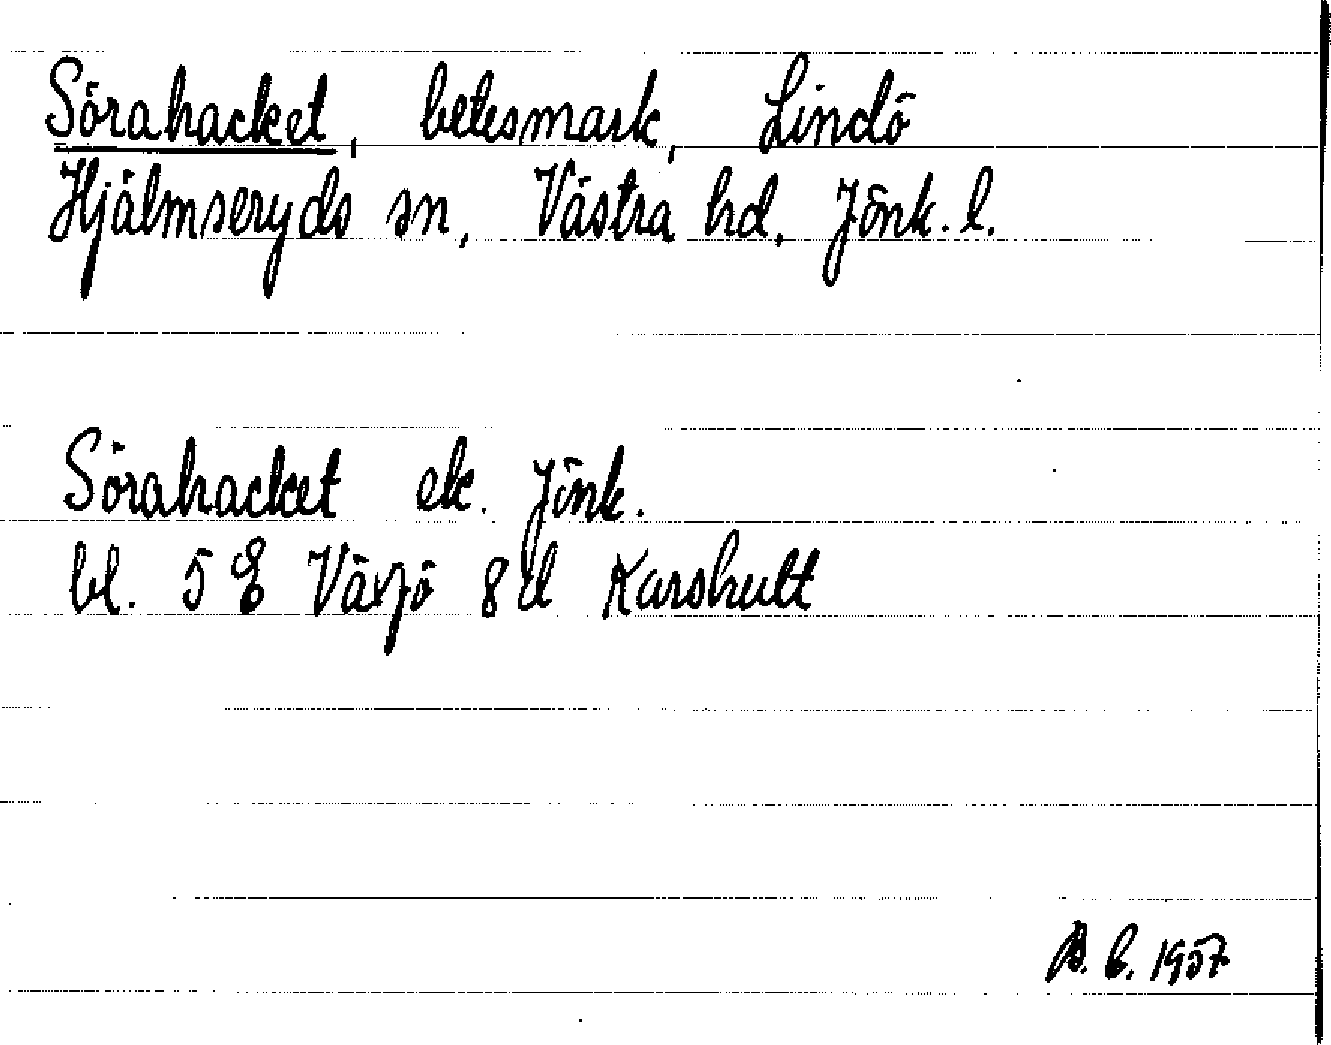 Sörahacket, betesmark, Lindö
Hjälmseryds sn, Västra hd, Jönk. l.
Sörahacket ek. Jönk.
bl. 5 E Växjö 8 d Karshult
B. E. 1957